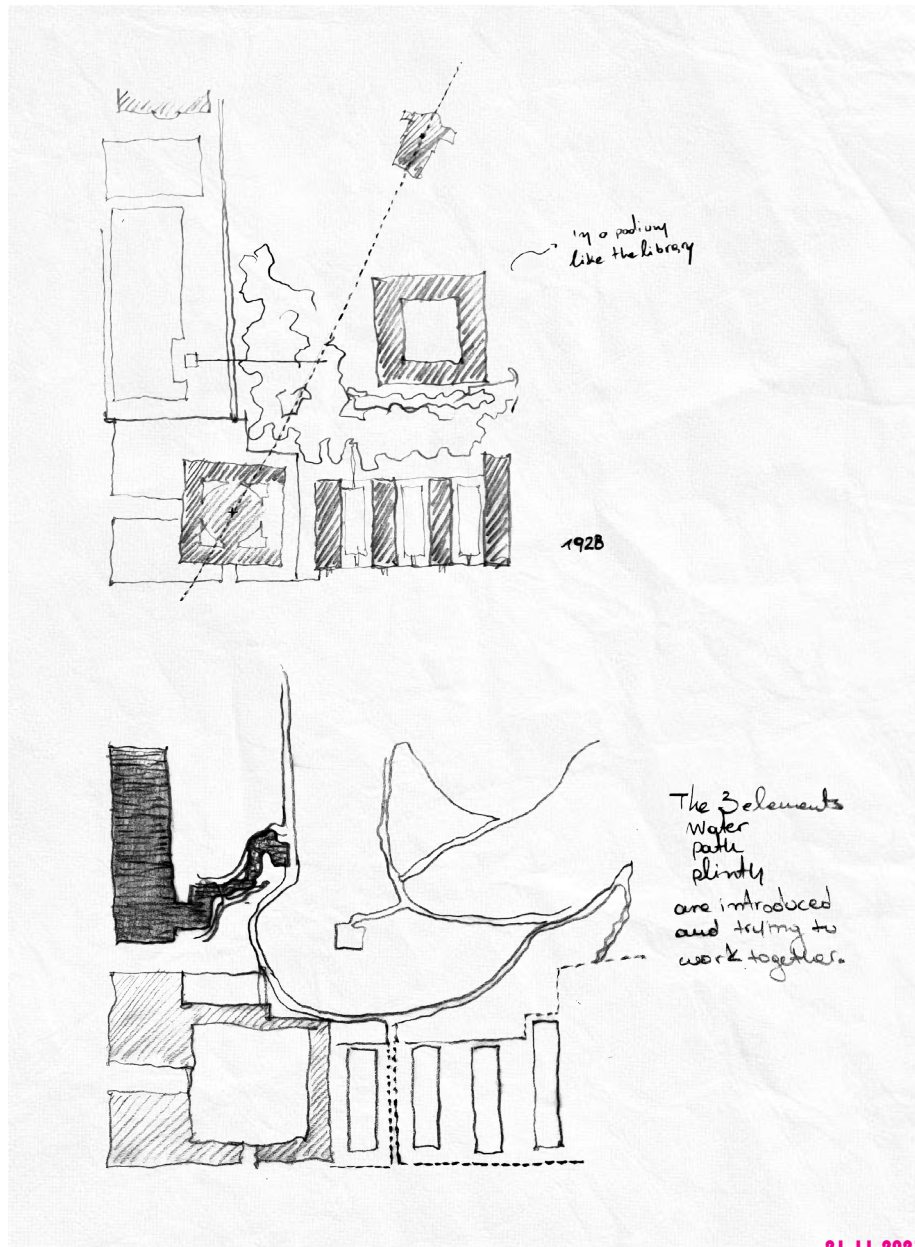 in a podium
like the library
1928
The 3 elements
Water
path
plinth
are introduced
and trying to
work together.